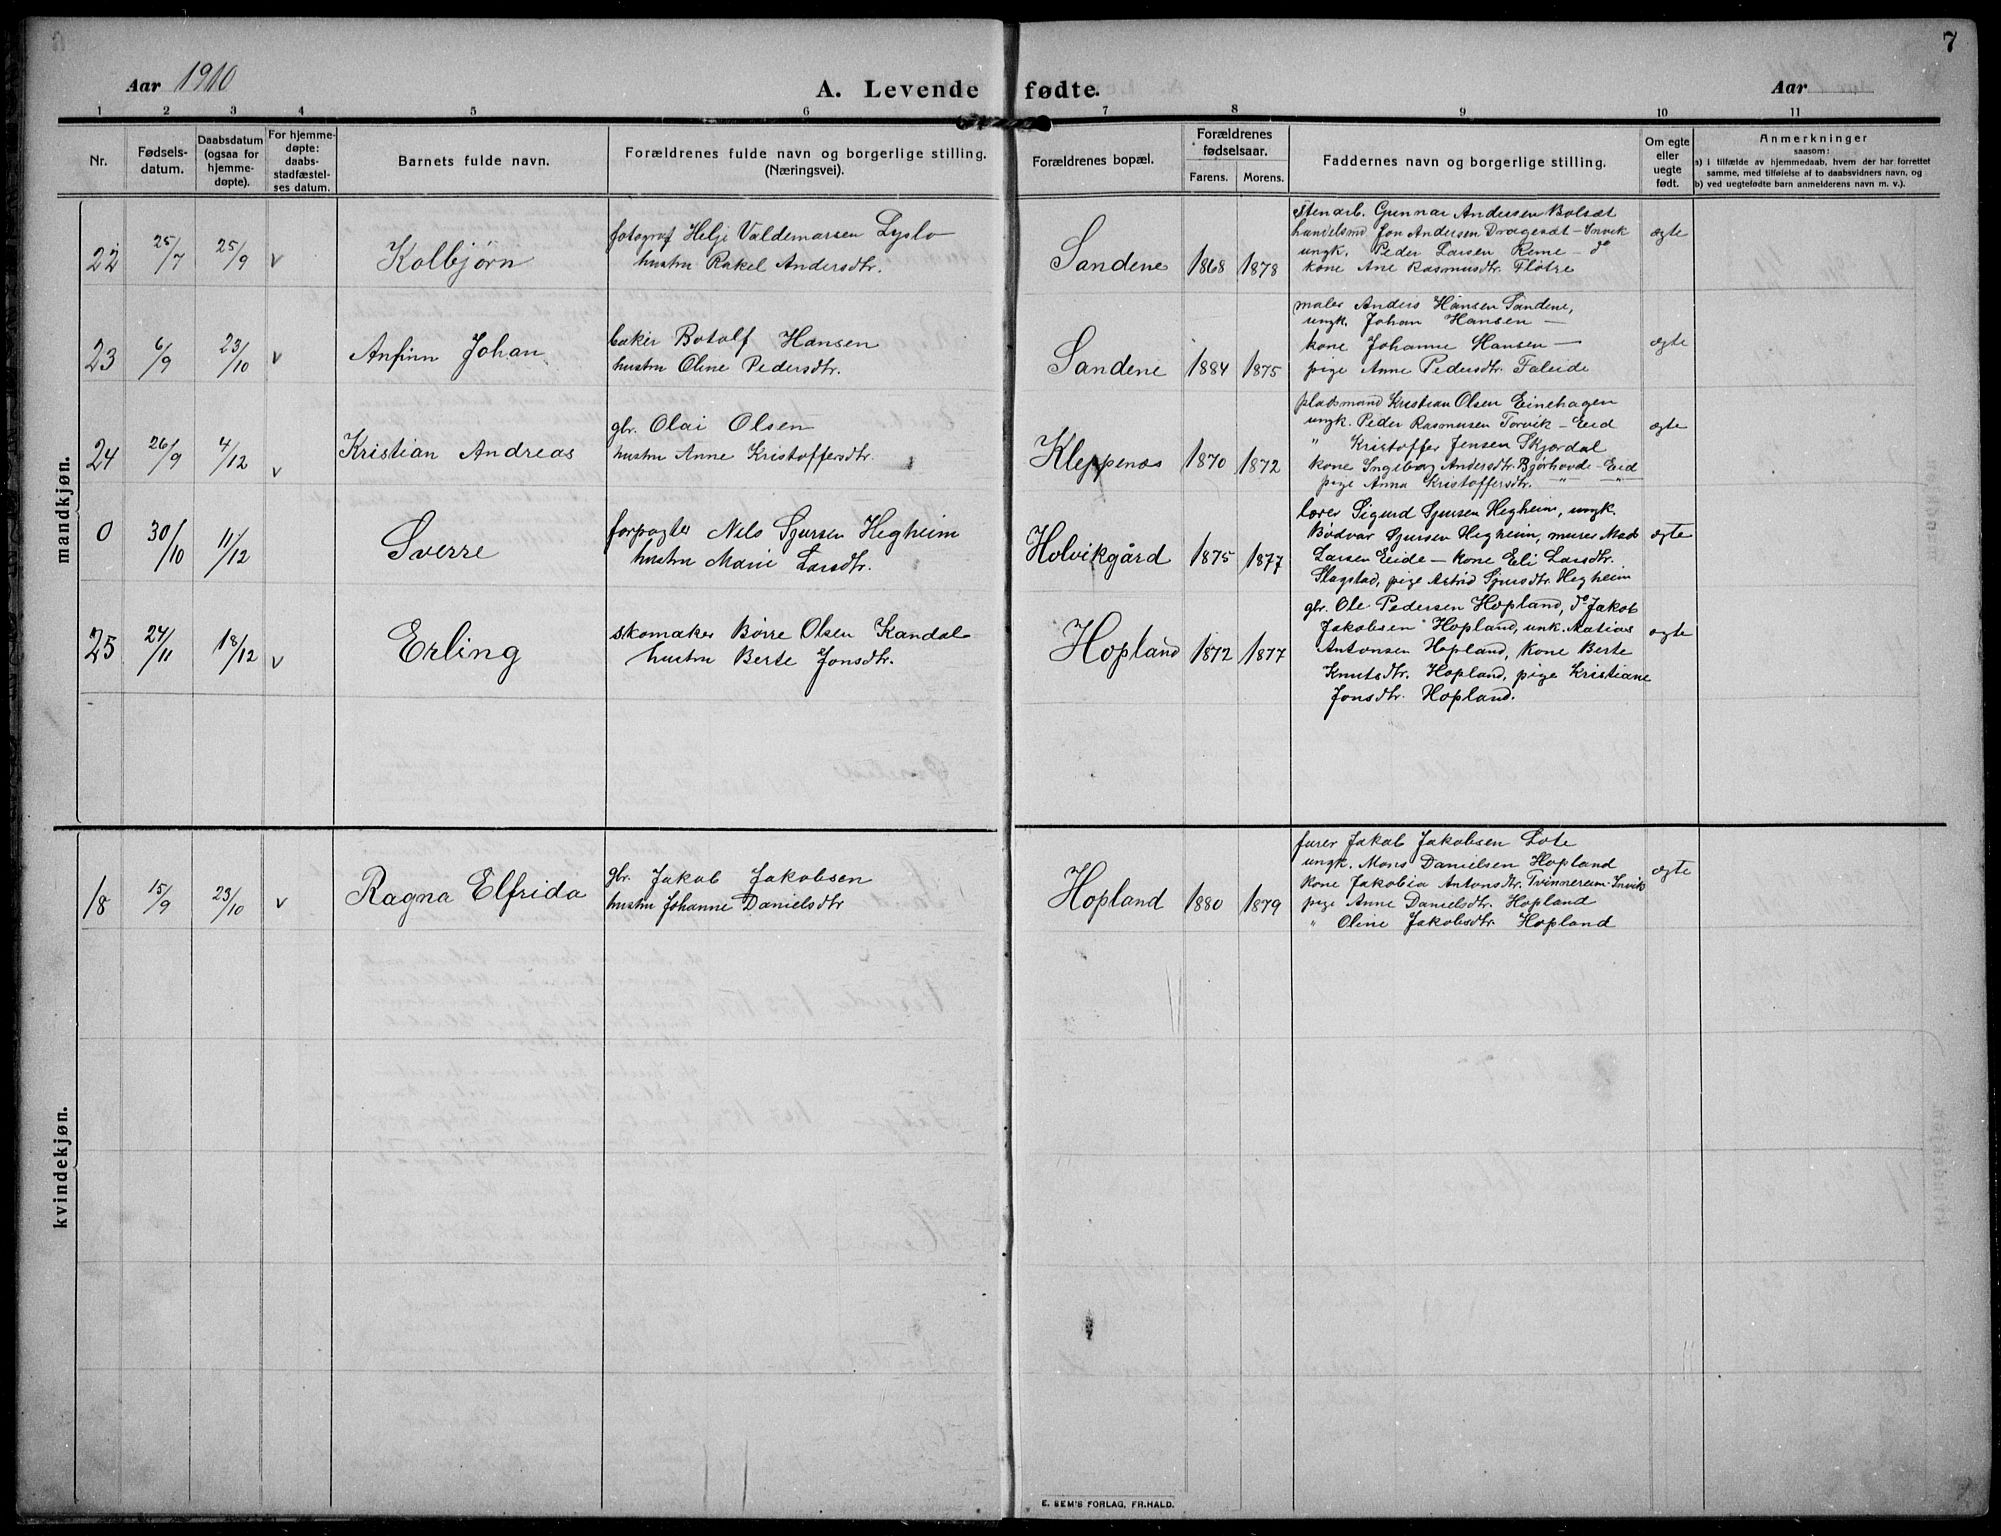 7
Aar 1910
A. Levende fødte.
Aar
1 2 3 4 5 6 7 8 9 10 11
Nr.
Fødsels-
datum.
Daabsdatum
(ogsaa for
hjemme-
døpte).
For hjemme-
døpte:
daabs-
stadfæstel-
ses datum.
Barnets fulde navn.
Forældrenes fulde navn og borgerlige stilling.
(Næringsvei).
Forældrenes bopæl.
Forældrenes
fødselsaar.
Farens. Morens.
Faddernes navn og borgerlige stilling.
Om egte
eller
uegte
født.
Anmerkninger
saasom:
a) i tilfælde av hjemmedaab, hvem der har forrettet
samme, med tilføielse af to daabsvidners navn, og
b) ved uegtefødte barn anmelderens navn m. v.).
mandkjøn.
22 25/7 25/9 v Kolbjørn
fotograf Helje Valdemarsen Lyslo
hustru Rakel Andersdtr.
Sandene 1868 1878
Stenarb. Gunnar Andersen Bolsæt
handelsmd Jon Andersen Dragesæt - Invik
ungk. Peder Larsen Reme - do
kone Ane Rasmusdtr. Fløtre
ægte
23 6/9 23/10 v Anfinn Johan
baker Botolf Hansen
hustru Oline Pedersdtr.
Sandene 1884 1875
maler Anders Hansen Sandene,
ungk. Johan Hansen —
kone Johanne Hansen —
pige Anne Pedersdtr. Faleide
ægte
24 26/9 4/12 v Kristian Andreas
gbr. Olai Olsen
hustru Anne Kristoffersdtr.
Kleppenes 1870 1872
pladsmand Kristian Olsen Einehagen
ungk. Peder Rasmusen Torvik - Eid
" Kristoffer Jensen Skjørdal
kone Ingeborg Andersdtr. Bjørhovde - Eid
pige Anna Kristoffersdtr. " "
ægte
0 30/10 11/12 Sverre
forpagter Nils Sjursen Hegheim
hustru Marie Larsdtr.
Holvikgård 1875 1877
lærer Sigurd Sjursen Hegheim, ungk.
Bødvar Sjursen Hegheim, murer Mads
Larsen Eide - kone Eli Larsdtr.
Slagstad, pige Astrid Sjursdtr. Hegheim
ægte
25 24/11 18/12 v Erling
skomaker Børre Olsen Kandal
hustru Berte Jonsdtr.
Hopland 1872 1877
gbr. Ole Pedersen Hopland, do Jakob
Jakobsen Hopland, unk. Matias
Antonsen Hopland, kone Berte
Knutsdtr. Hopland, pige Kristiane
Jonsdtr. Hopland.
ægte
kvindekjøn.
18 15/9 23/10 v Ragna Elfrida
gbr. Jakob Jakobsen
hustru Johanne Danielsdtr
Hopland 1880 1879
furer Jakob Jakobsen Lote
ungk. Mons Danielsen Hopland
kone Jakobia Antonsdtr. Tvinnereim - Invik
pige Anne Danielsdtr. Hopland
" Oline Jakobsdtr. Hopland
ægte
E. SEM'S FORLAG, FR.HALD.